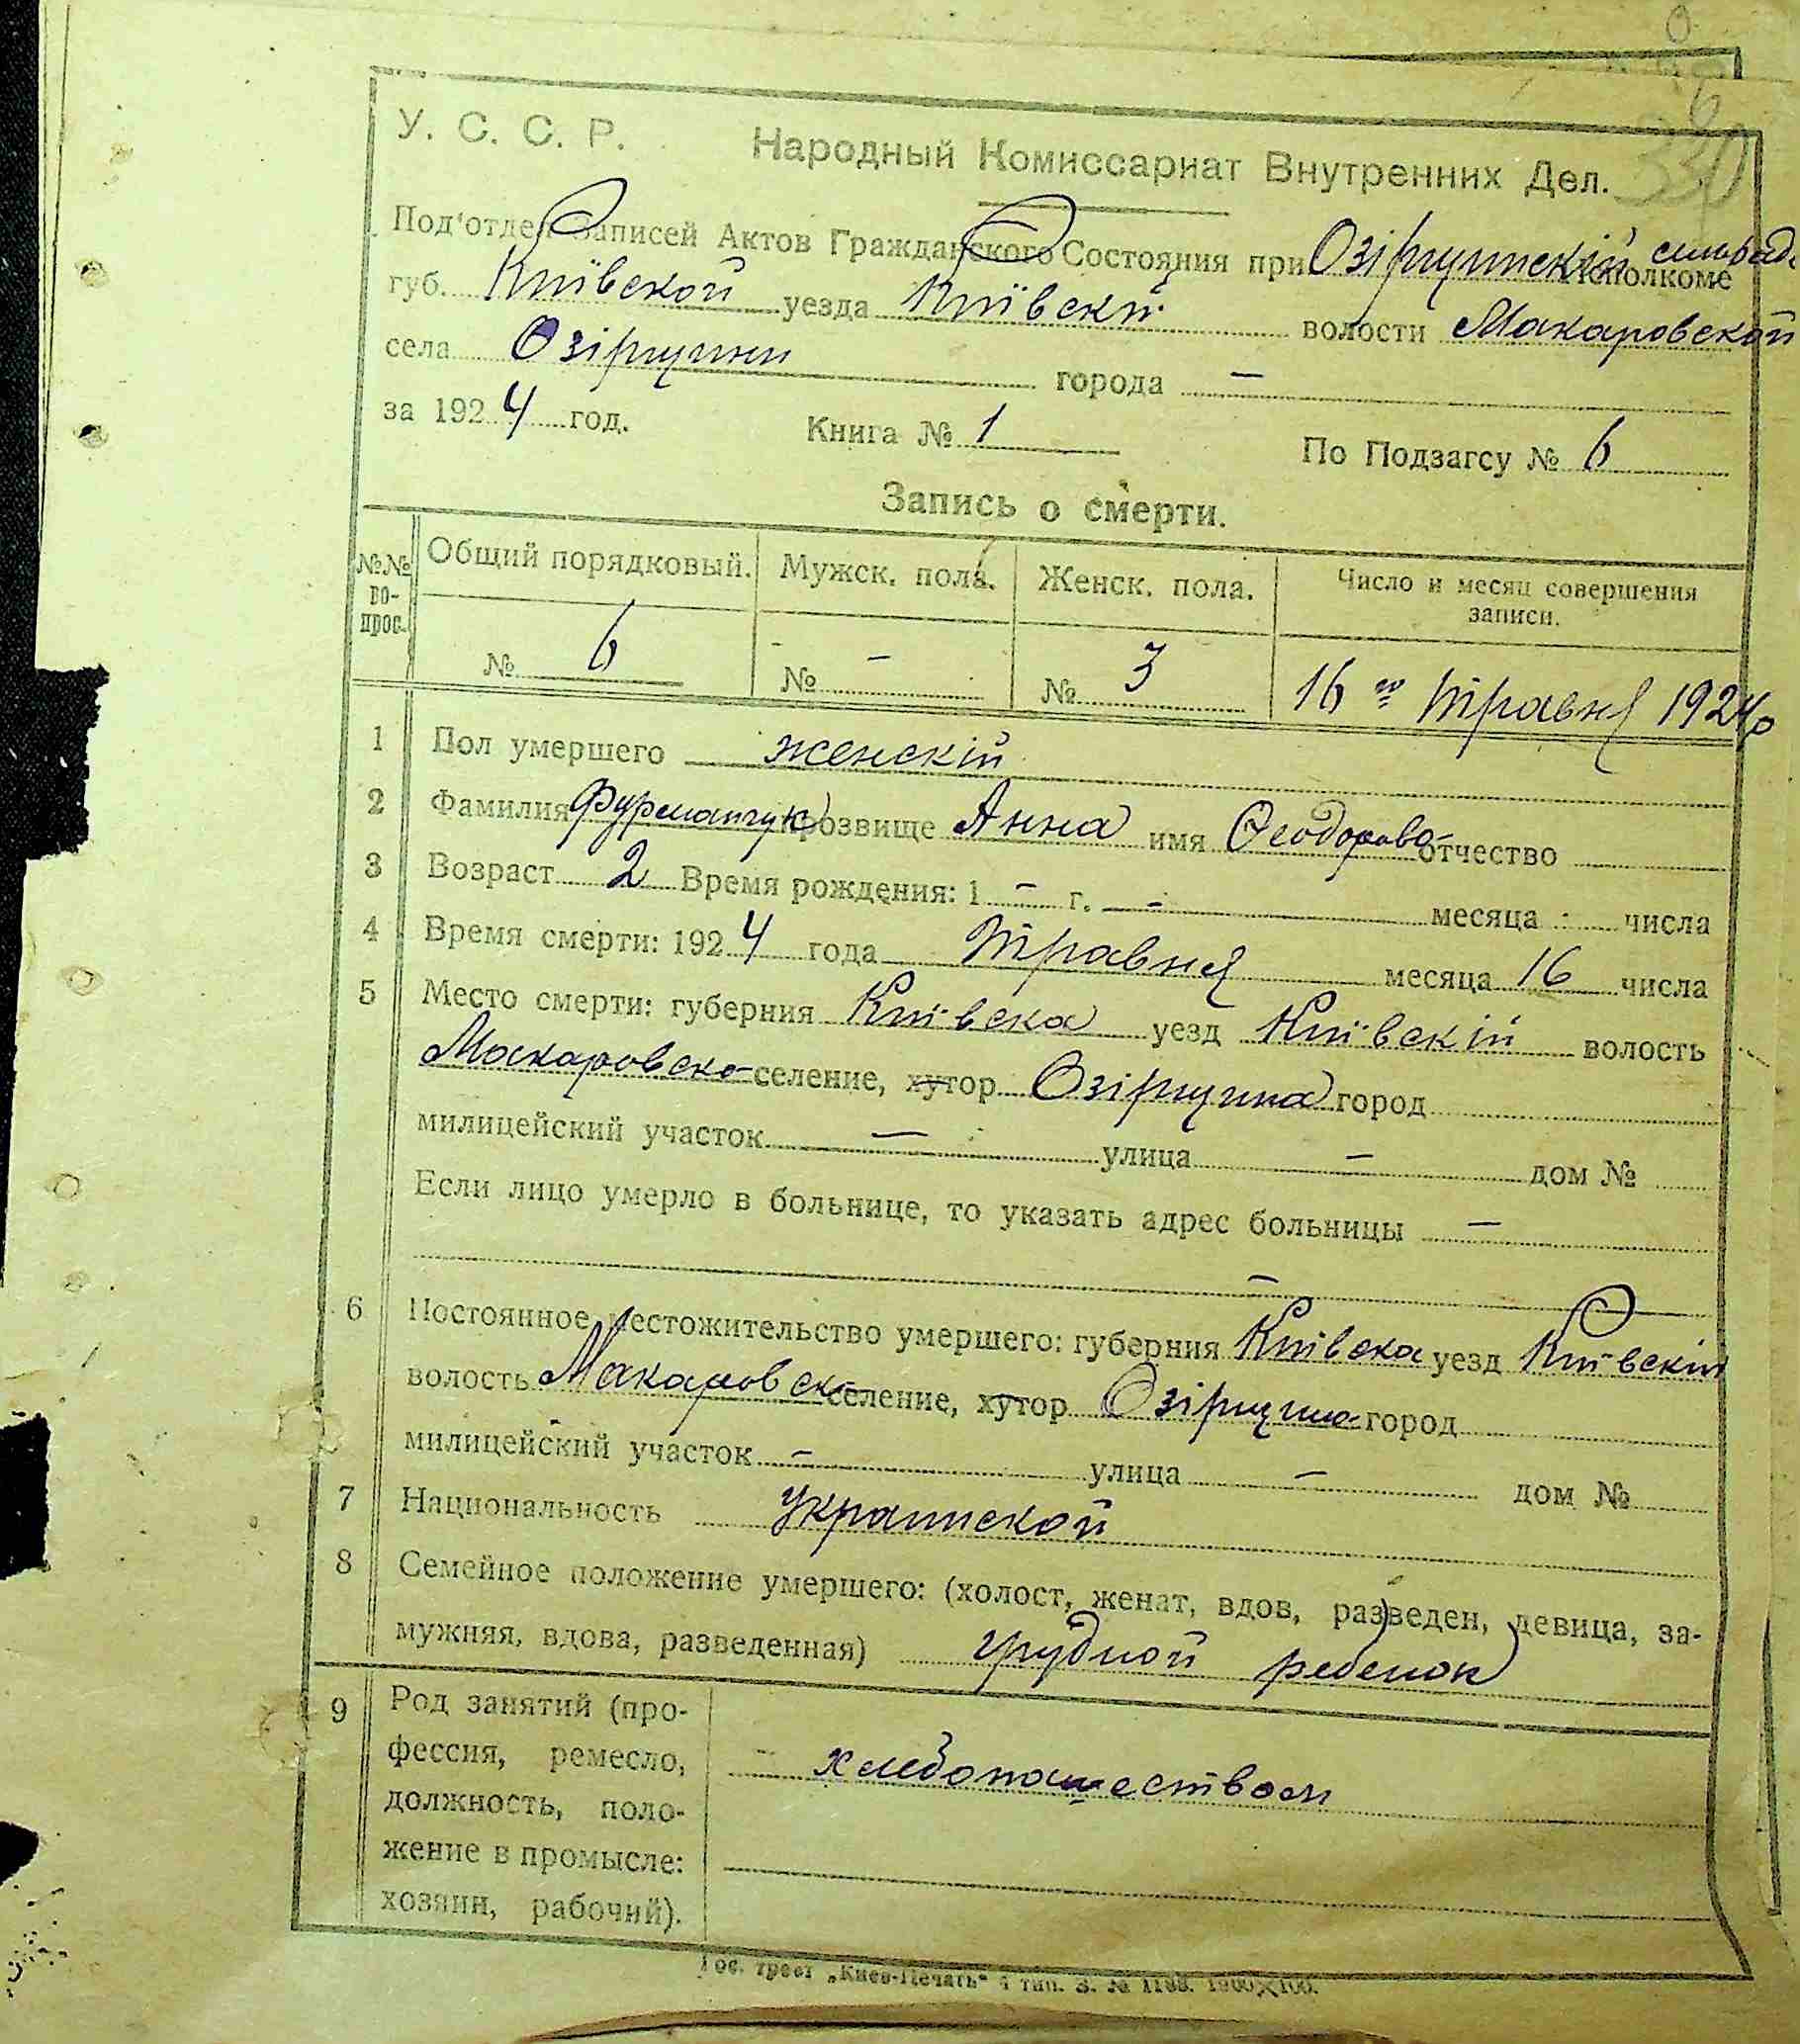 6
330
У. С. С. Р. Народный Комиссариат Внутренних Дел.
Под'отдел Записей Актов Гражданского Состояния при Озірщинскій сільрад. Исполкоме
губ. Київской уезда Київскій волости Макаровской
села Озірщини города —
за 1924 год. Книга № 1 По Подзагсу № 6
Запись о смерти.
№№ во-прос. Общий порядковый. Мужск. пола. Женск. пола. Число и месяц совершения записи.
№ 6 № — № 3 16го травня 1924р
1 Пол умершего женскій
2 Фамилия Фурманчук прозвище Анна имя Феодорова отчество
3 Возраст 2 Время рождения: 1 — г. — месяца числа
4 Время смерти: 1924 года травня месяца 16 числа
5 Место смерти: губерния Київска уезд Київскій волость
Макаровско селение, хутор Озірщина город
милицейский участок — улица — дом №
Если лицо умерло в больнице, то указать адрес больницы —
—
6 Постоянное местожительство умершего: губерния Київска уезд Київскій
волость Макаровск селение, хутор Озірщина город
милицейский участок — улица — дом №
7 Национальность украинской
8 Семейное положение умершего: (холост, женат, вдов, разведен, девица, за-
мужняя, вдова, разведенная) грудной ребенок
9 Род занятий (про-
фессия, ремесло, хлебопашеством
должность, поло-
жение в промысле:
хозяин, рабочий).
Гос. трест „Киев-Печать“ 4 тип. З. № 1188. 1000×100.